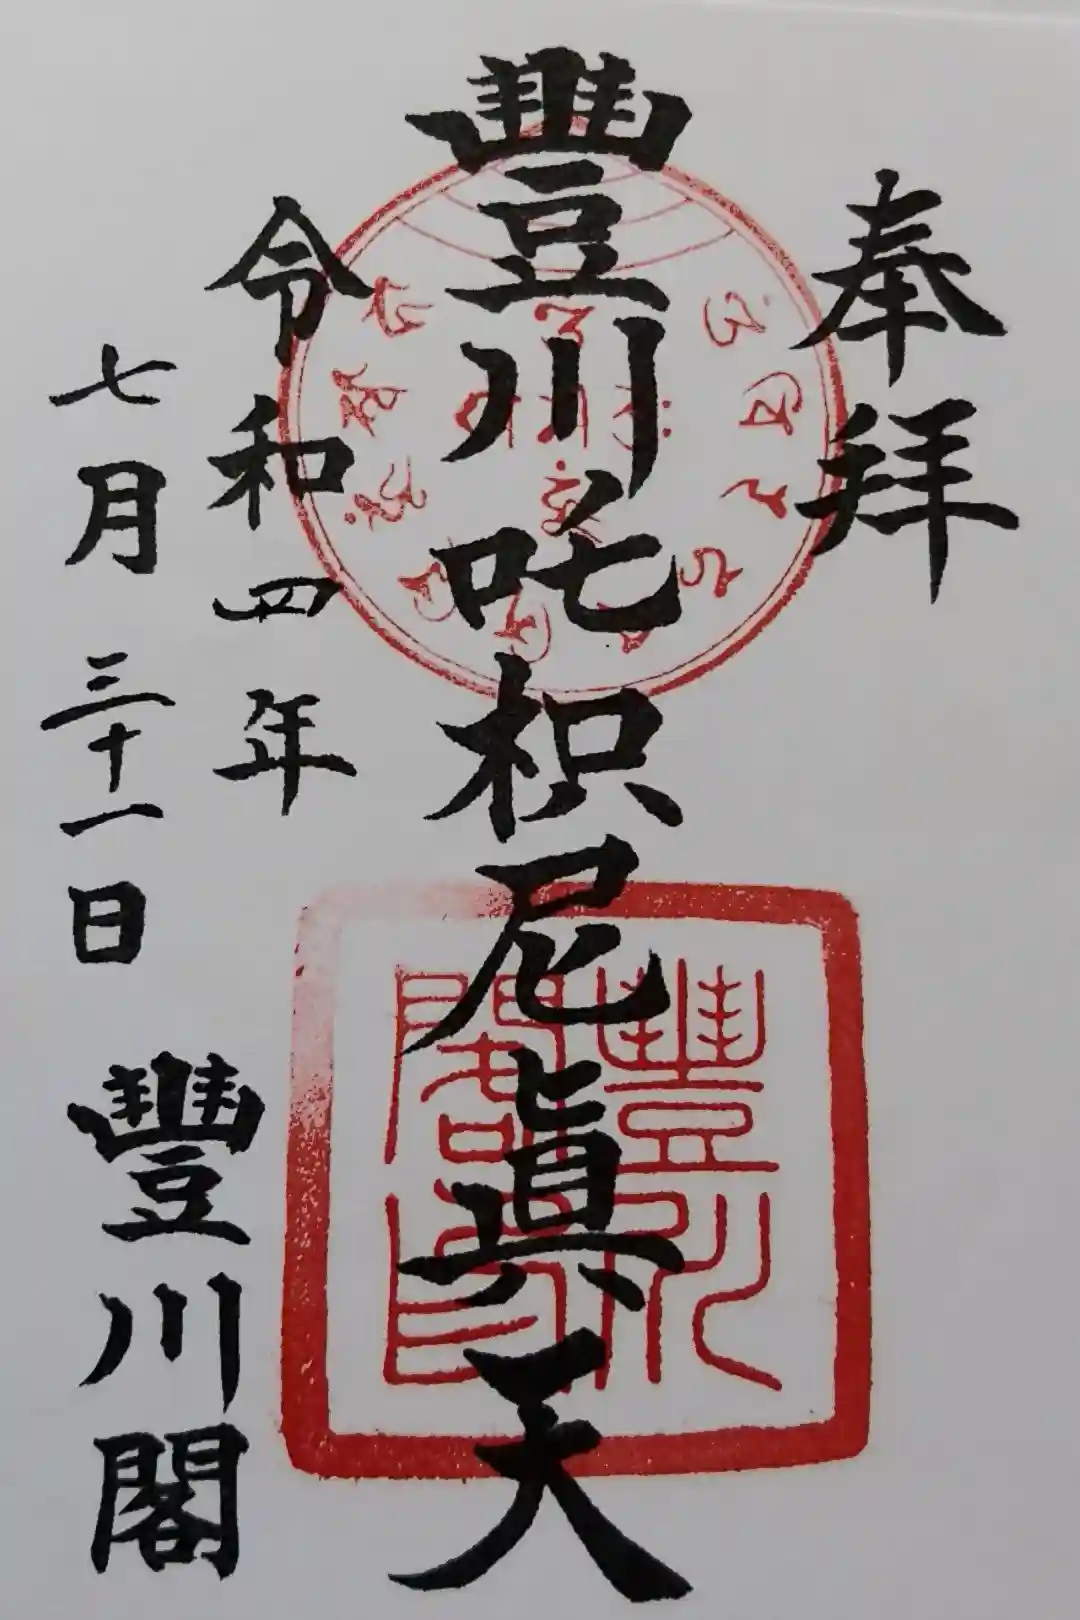 奉拜
豐川吒枳尼眞天
令和四年
七月三十一日
豐川閣
豐川
閣印